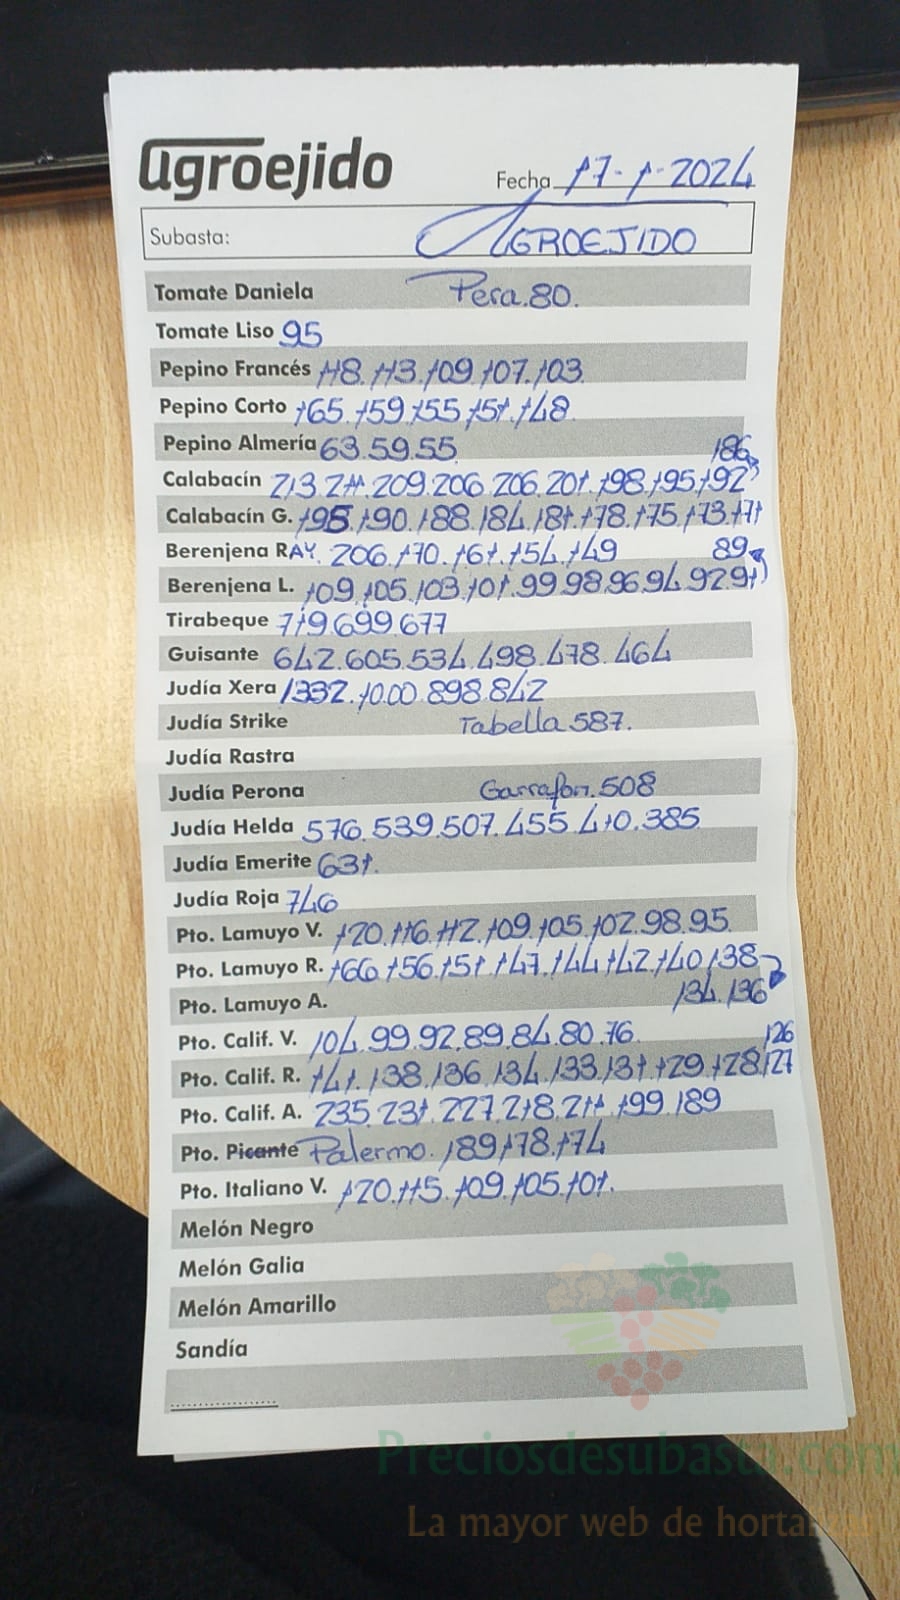 agroejido
Fecha 17-1-2024
Subasta: AGROEJIDO
Tomate Daniela Pera.80.
Tomate Liso 95
Pepino Francés 118.113.109.107.103
Pepino Corto 165.159.155.151.148
Pepino Almería 63.59.55
186
Calabacín 213.211.209.206.206.201.198.195.192
Calabacín G. 195.190.188.184.181.178.175.173.171
Berenjena RAY. 206.170.161.154.149
89
Berenjena L. 109.105.103.101.99.98.96.94.92.91
Tirabeque 719.699.677
Guisante 642.605.534.498.478.464
Judía Xera 1332.1000.898.842
Judía Strike Tabella 587.
Judía Rastra
Judía Perona Garrafon.508
Judía Helda 576.539.507.455.410.385
Judía Emerite 631.
Judía Roja 746
Pto. Lamuyo V. 120.116.112.109.105.102.98.95
Pto. Lamuyo R. 166.156.151.147.144.142.140.138
134.136
Pto. Lamuyo A.
Pto. Calif. V. 104.99.92.89.84.80.76.
126
Pto. Calif. R. 141.138.136.134.133.131.129.128.127
Pto. Calif. A. 235.231.227.218.211.199.189
Pto. Picante Palermo.189.178.174
Pto. Italiano V. 120.115.109.105.101.
Melón Negro
Melón Galia
Melón Amarillo
Sandía
Preciosdesubasta.com
La mayor web de hortalizas